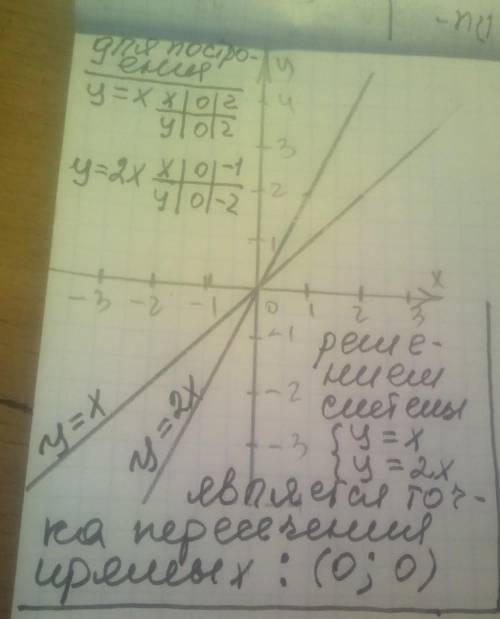 -п()
для постро-
ения
y=x x|0|2
y|0|2
y=2x x|0|-1
y|0|-2
y
4
3
2
1
x
-3 -2 -1 0 1 2 3
-1
-2
-3
y=x
y=2x
реше-
нием
системы
{ y=x
y=2x
является точ-
ка пересечения
прямых : (0; 0)